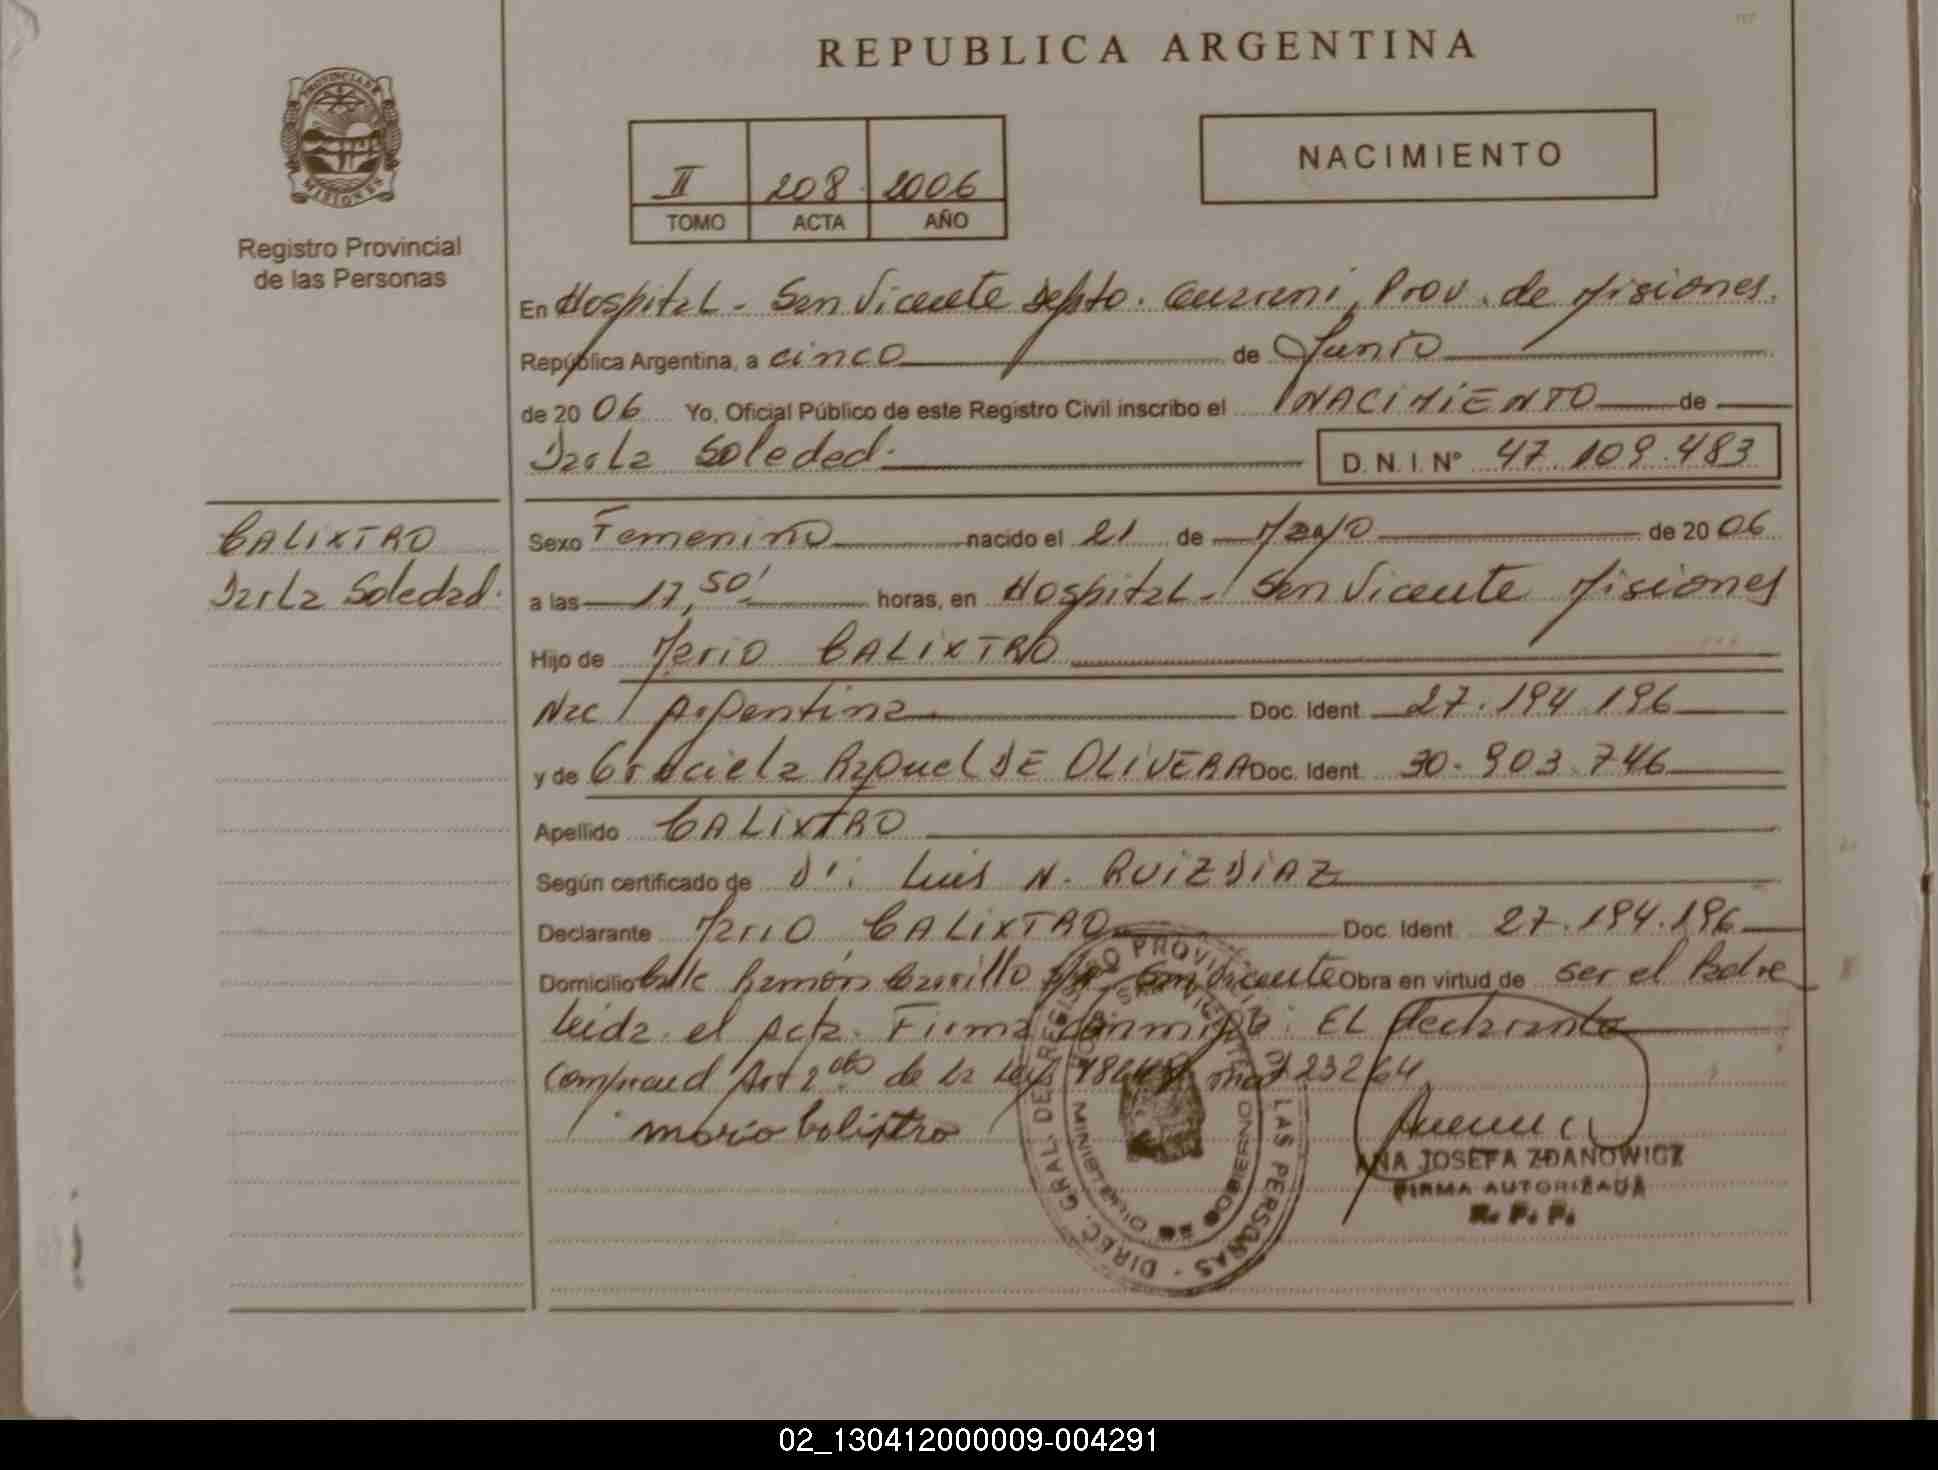 REPUBLICA ARGENTINA
PROVINCIA DE
MISIONES
Registro Provincial
de las Personas
II 208 2006
TOMO ACTA AÑO
NACIMIENTO
En Hospital - San Vicente Depto. Guarani, Prov. de Misiones.
República Argentina, a cinco de Junio
de 2006 Yo, Oficial Público de este Registro Civil inscribo el NACIMIENTO de
Soledad. D.N.I. Nº 47.109.483
CALIXTRO
Soledad.
Sexo Femenino nacido el 21 de Mayo de 2006
a las 17,50' horas, en Hospital - San Vicente Misiones
Hijo de Mario CALIXTRO
Nac Argentina Doc. Ident. 27.194.196
y de Graciela Raquel DE OLIVERA Doc. Ident. 30.903.746
Apellido CALIXTRO
Según certificado de Dr: Luis N. RUIZ DIAZ
Declarante Mario CALIXTRO Doc. Ident. 27.194.196
Domicilio Calle Ramón Carrillo San Vicente Obra en virtud de ser el Padre
Leida el Acta Firma conmigo: EL declarante
Art 2do de la Ley 23264
mario Calixtro
DIREC. GRAL. DE REGISTRO PROVINCIAL DE LAS PERSONAS
SAN VICENTE
MINISTERIO DE GOBIERNO
ANA JOSEFA ZDANOWICZ
FIRMA AUTORIZADA
R. P. P.
02_130412000009-004291